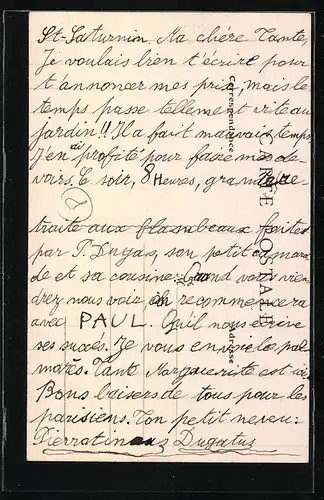 St-Saturnin. Ma chère Tante,
Je voulais bien t'écrire pour
t'annoncer mes prix, mais le
temps passe tellement vite au
jardin!! Il a fait mauvais temps
J'en ai profité pour faire mes de-
voirs. Ce soir, 8 Heures, grande re-
traite aux flambeaux faite
par P. Dugas, son petit camara-
de et sa cousine. Quand vous vien-
drez nous voir, on recommencera
avec PAUL. Qu'il nous écrive
ses suxés. Je vous envoie le pal-
marès. Tante Marguerite est ici
Bons baisers de tous pour les
parisiens. Ton petit neveu:
Pierratinus Dugatus
CARTE POSTALE
Correspondance
Adresse